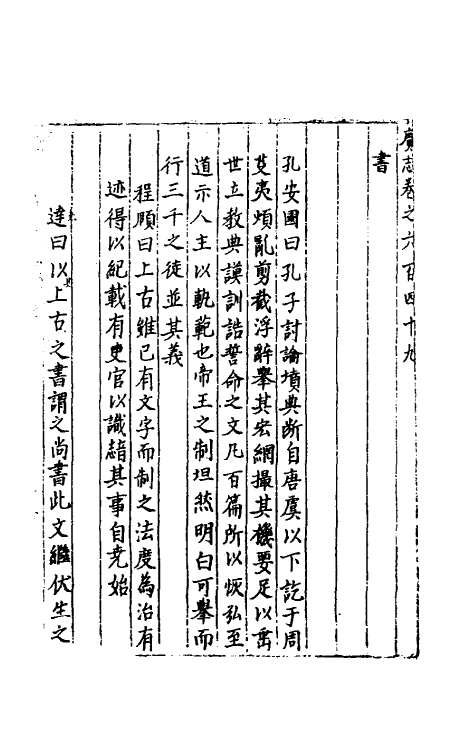 廣志卷之六百四十九
書
孔安國曰孔子討論墳典斷自唐虞以下訖于周
芟夷煩亂剪截浮辭舉其宏綱撮其機要足以垂
世立教典謨訓誥誓命之文凡百篇所以恢弘至
道示人主以軌範也帝王之制坦然明白可舉而
行三千之徒並其義
程頤曰上古雖已有文字而制之法度為治有
迹得以紀載有史官以識其事自堯始
達曰以上古之書謂之尚書此文繼伏生之